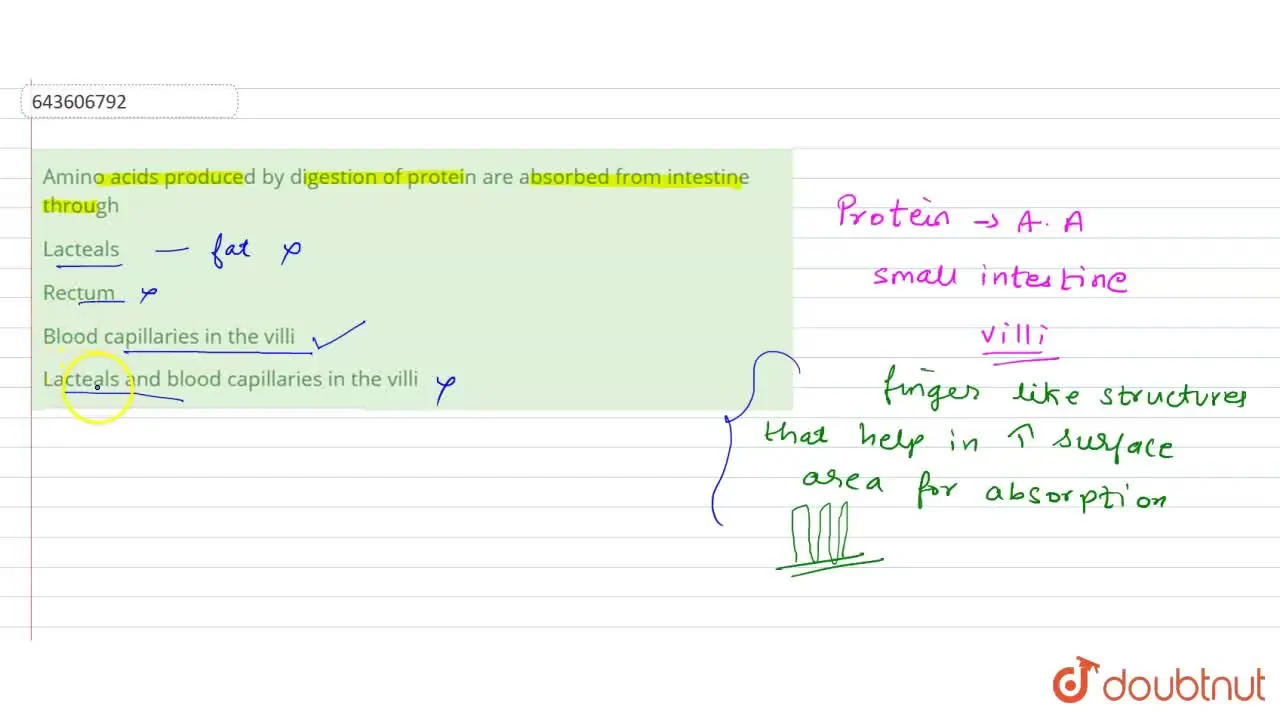 643606792
Amino acids produced by digestion of protein are absorbed from intestine
through
Lacteals — fat x
Rectum x
Blood capillaries in the villi ✓
Lacteals and blood capillaries in the villi x
Protein → A.A
small intestine
villi
finger like structures
that help in ↑ surface
area for absorption
doubtnut